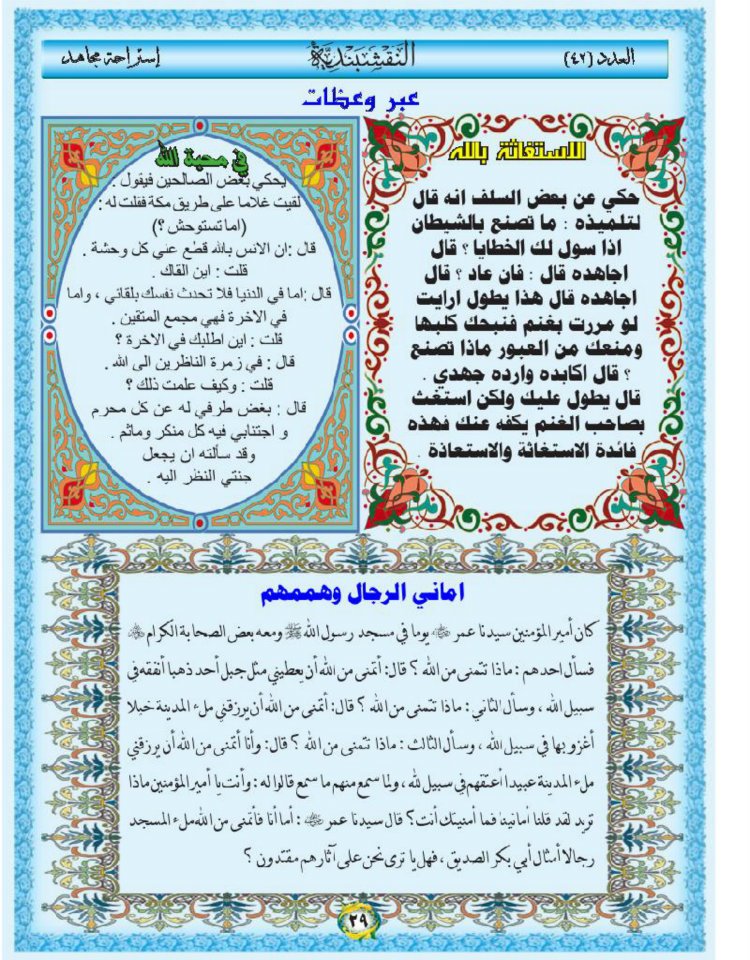 العدد (٤٢)
النقشبندية
إستراحة مجاهد
عبر وعظات
الاستغاثة بالله
حكي عن بعض السلف انه قال
لتلميذه : ما تصنع بالشيطان
اذا سول لك الخطايا ؟ قال
اجاهده قال : فان عاد ؟ قال
اجاهده قال هذا يطول ارايت
لو مررت بغنم فنبحك كلبها
ومنعك من العبور ماذا تصنع
؟ قال اكابده وارده جهدي .
قال يطول عليك ولكن استغث
بصاحب الغنم يكفه عنك فهذه
فائدة الاستغاثة والاستعاذة .
في محبة الله
يحكي بعض الصالحين فيقول .
لقيت غلاما على طريق مكة فقلت له :
(اما تستوحش ؟)
قال :ان الانس بالله قطع عني كل وحشة .
قلت : اين القاك .
قال :اما في الدنيا فلا تحدث نفسك بلقائي ، واما
في الاخرة فهي مجمع المتقين .
قلت : اين اطلبك في الاخرة ؟
قال : في زمرة الناظرين الى الله .
قلت : وكيف علمت ذلك ؟
قال : بغض طرفي له عن كل محرم
و اجتنابي فيه كل منكر وماثم .
وقد سألته ان يجعل
جنتي النظر اليه .
اماني الرجال وهممهم
كان أمير المؤمنين سيدنا عمر ﷺ يوما في مسجد رسول الله ﷺ ومعه بعض الصحابة الكرام
فسأل احدهم : ماذا تتمنى من الله ؟ قال: أتمنى من الله أن يعطيني مثل جبل أحد ذهبا أنفقه في
سبيل الله ، وسأل الثاني : ماذا تتمنى من الله ؟ قال: أتمنى من الله أن يرزقني ملء المدينة خيلا
أغزو بها في سبيل الله ، وسأل الثالث : ماذا تتمنى من الله ؟ قال: وأنا أتمنى من الله أن يرزقني
ملء المدينة عبيدا أعتقهم في سبيل لله ، ولما سمع منهم ما سمع قالوا له : وأنت يا أمير المؤمنين ماذا
تريد لقد قلنا أمانينا فما أمنيتك أنت؟ قال سيدنا عمر : أما أنا فأتمنى من الله ملء المسجد
رجالا أمثال أبي بكر الصديق ، فهل يا ترى نحن على آثارهم مقتدون ؟
٢٩